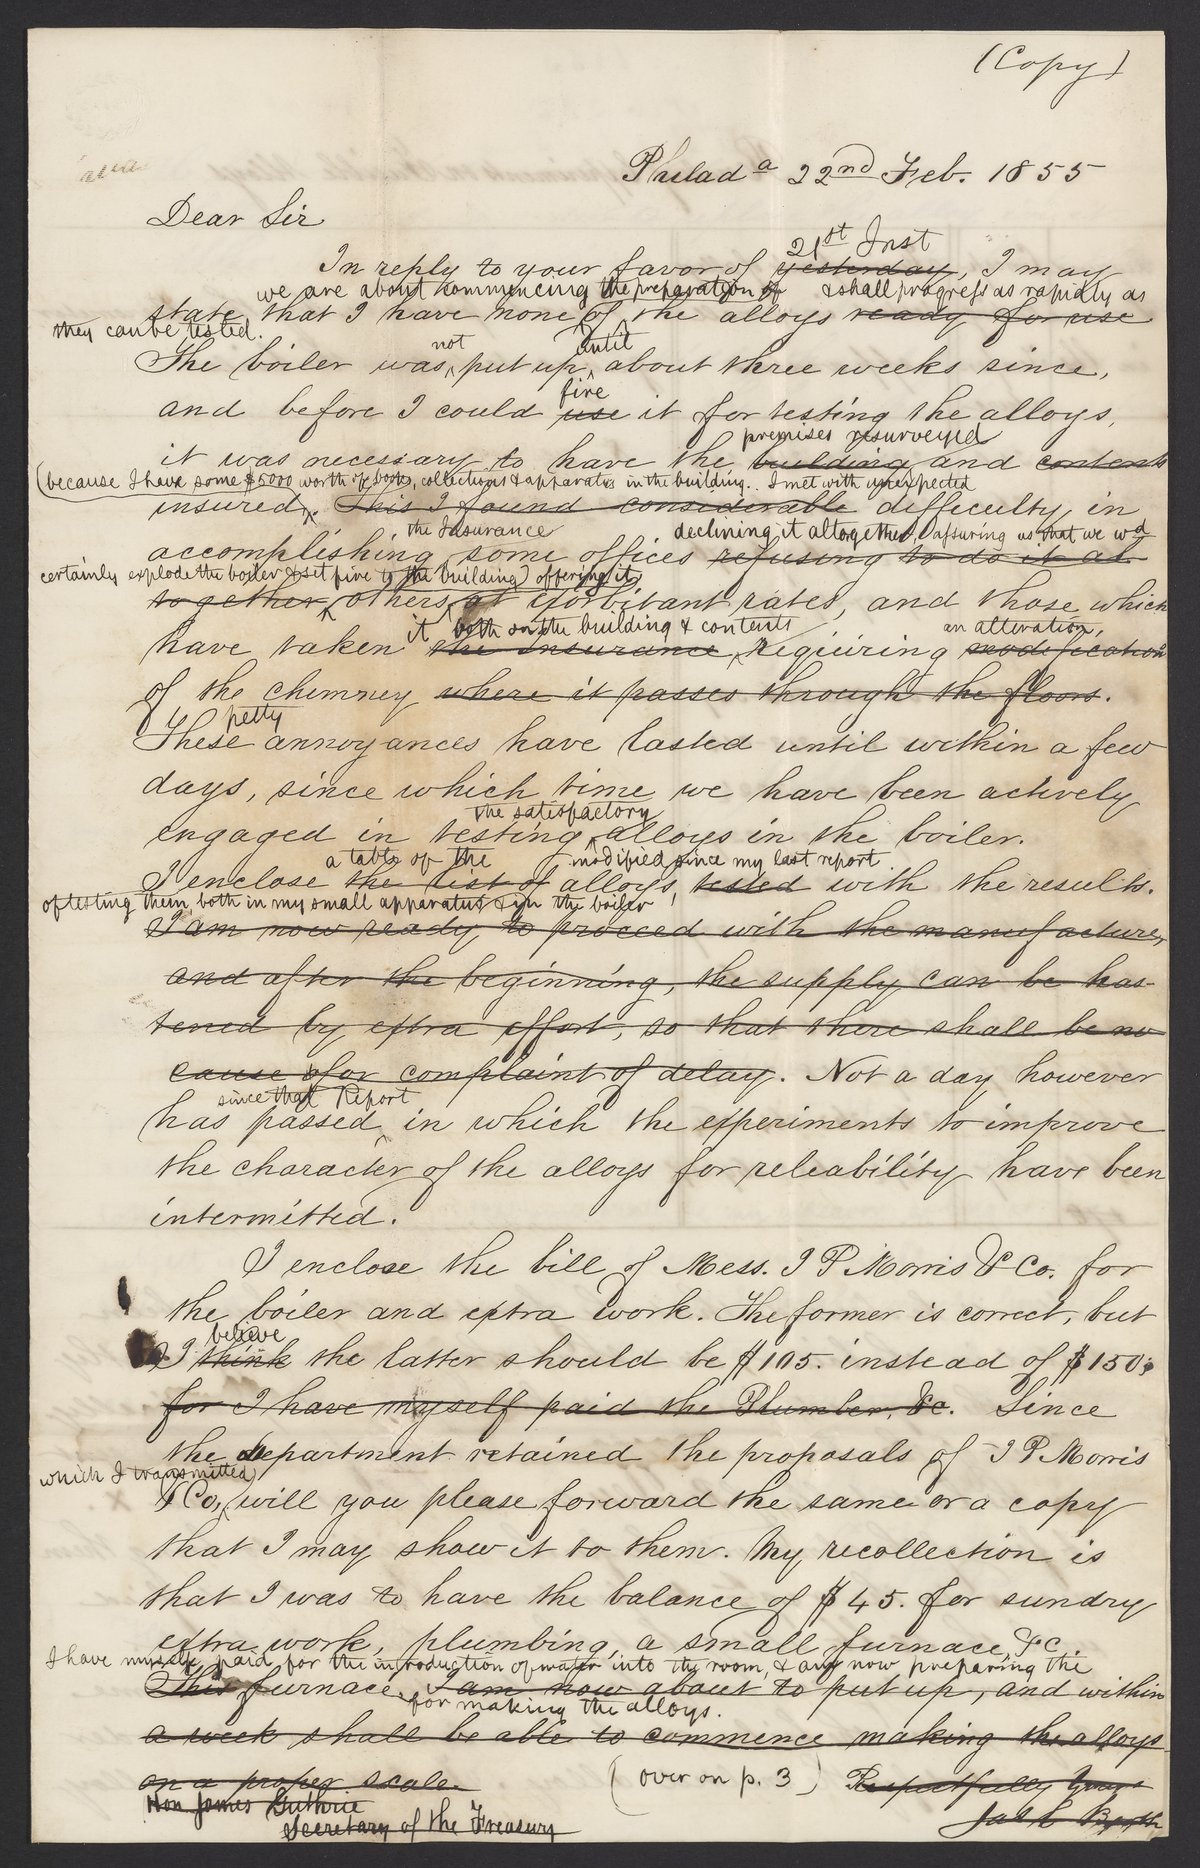 (Copy)
Philad a 22nd Feb. 1855
Dear Sir
21st Inst
In reply to your favor of yesterday, I may
we are about commencing the preparation of & shall progress as rapidly as
state that I have none of the alloys ready for use
they can be tested.
not until
The boiler was put up about three weeks since,
fire
and before I could use it for testing the alloys,
premises resurveyed
it was necessary to have the building and contents
(because I have some $5000 worth of books, collections & apparatus in the building. I met with unexpected
insured. This I found considerable difficulty in
the Insurance declining it altogether, (assuring us that we wd
accomplishing some offices refusing to do it al
certainly explode the boiler & set fire to the building) offering it
together, others at exorbitant rates, and those which
it both on the building & contents an alteration,
have taken the Insurance, requiring modification
of the chimney where it passes through the floors.
petty
These annoyances have lasted until within a few
days, since which time we have been actively
the satisfactory
engaged in testing alloys in the boiler.
a table of the modified since my last report
I enclose the list of alloys, tested with the results.
of testing them, both in my small apparatus & in the boiler
I am now ready to proceed with the manufacture,
and after the beginning, the supply can be has-
tened by extra effort, so that there shall be no
cause for complaint of delay. Not a day however
since that Report
has passed in which the experiments to improve
the character of the alloys for releability have been
intermitted.
I enclose the bill of Mess. I P Morris & Co. for
the boiler and extra work. The former is correct, but
believe
I think the latter should be $105. instead of $150.
for I have myself paid the Plumber, &c. Since
the department retained the proposals of I P Morris
which I transmitted
& Co, will you please forward the same or a copy
that I may show it to them. My recollection is
that I was to have the balance of $45. for sundry
extra work, plumbing, a small furnace &c
I have myself paid for the introduction of water into the room, & am now preparing the
This furnace I am now about to put up, and within
for making the alloys.
a week shall be able to commence making the alloys
on a proper scale.
(over on p. 3) Respectfully Yours
Hon James Guthrie
Secretary of the Treasury